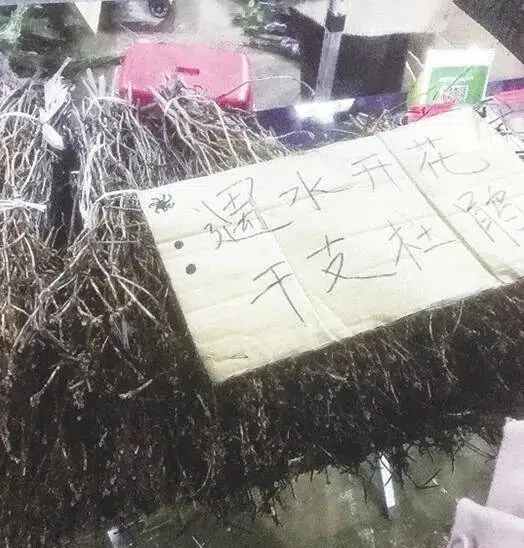 遇水开花
干支杜鹃